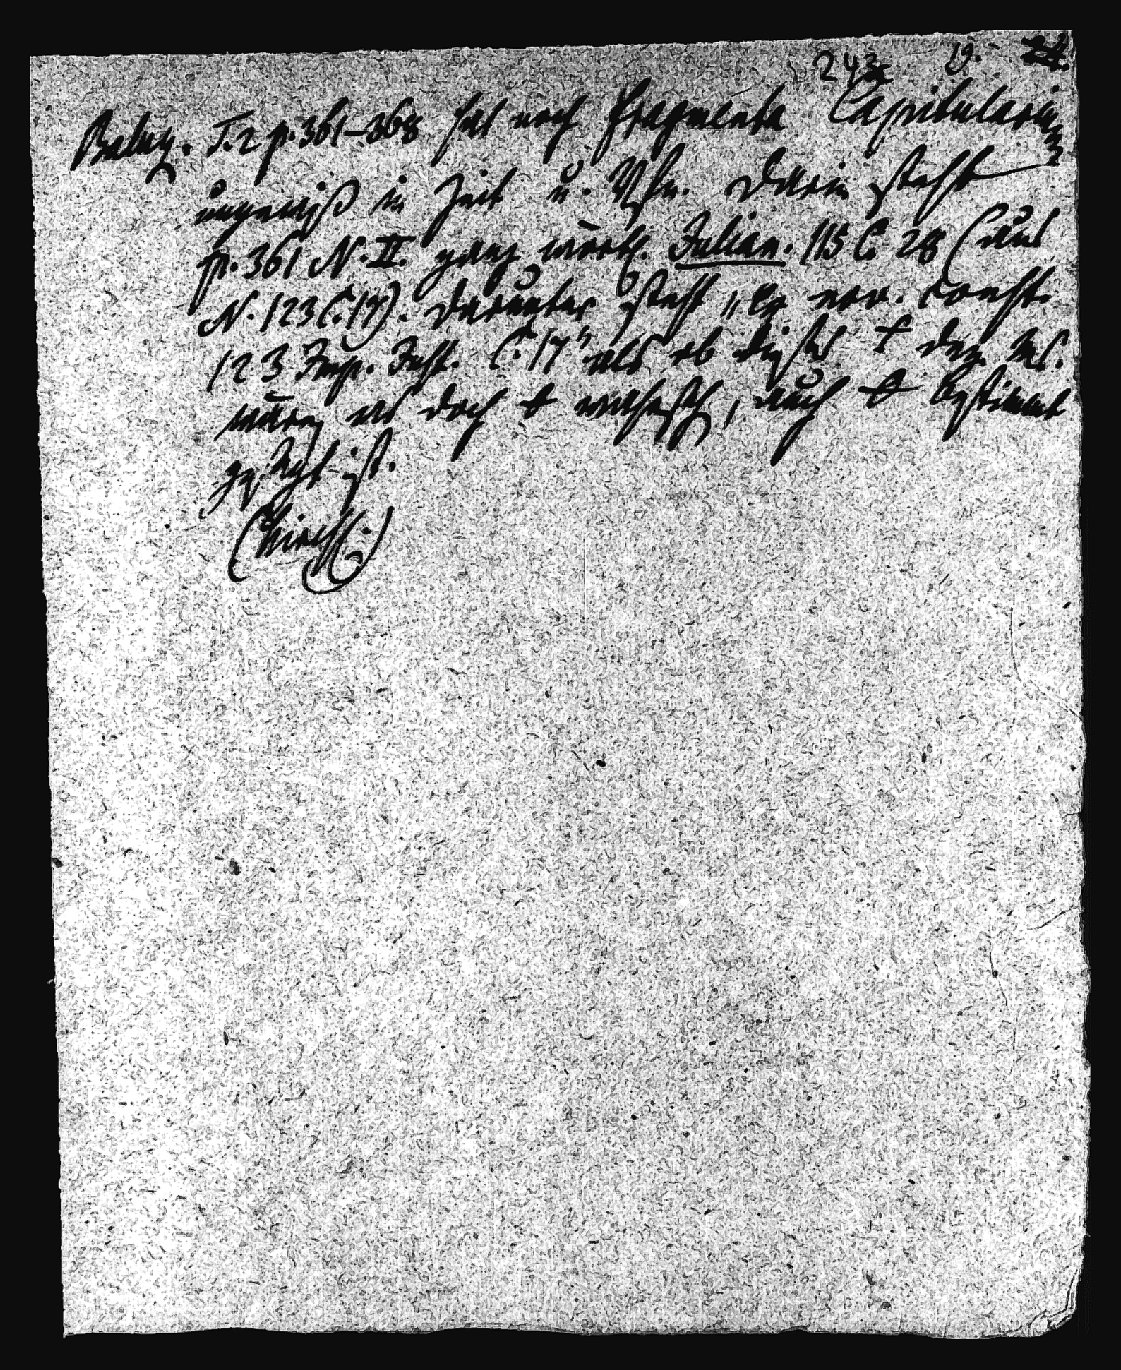 243 19. 24.
Baluz. T. 2 p. 361–368 hat noch Fragmenta Capitularium
ungewiß in Zeit u. Darin steht
p. 361 N. II. ganz wörtl. Julian. 115 C. 28 (aus
N. 123 C. 17). Darunter steht „Ex nov. const.
123 Imp. Just. C. 17“ als ob dieses + den
wären es doch +, auch + bestimmt
gesagt ist.